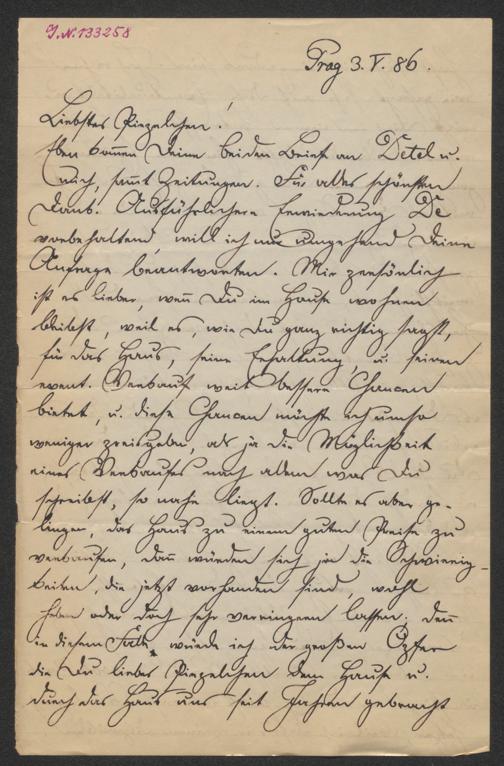 I.N. 133258
Prag 3. V. 86.
Liebstes Piezelchen!
Eben kom̅en Deine beiden Briefe an Detel u.
mich, sam̅t Zeitungen. Für alles schönsten
Dank. Ausführlichere Erwiederung De
vorbehaltend, will ich nur umgehend Deine
Anfrage beantworten. Mir persönlich
ist es lieber, wen̅ Du im Hause wohnen
bleibst, weil es, wie Du ganz richtig sagst,
für das Haus, seine Erhaltung u. seinen
event. Verkauf weit bessere Chancen
bietet, u. diese Chancen möchte ich umso
weniger preisgeben, als ja die Möglichkeit
eines Verkaufes nach allem was Du
schreibst, so nahe liegt. Sollte es aber ge-
lingen, das Haus zu einem guten Preise zu
verkaufen, dan̅ würden sich ja die Schwierig-
keiten, die jetzt vorhanden sind, wohl
heben oder doch sehr verringern lassen; den̅
in diesem Falle würde ich der großen Opfer
die Du liebes Piezelchen dem Hause u.
durch das Haus uns seit Jahren gebracht